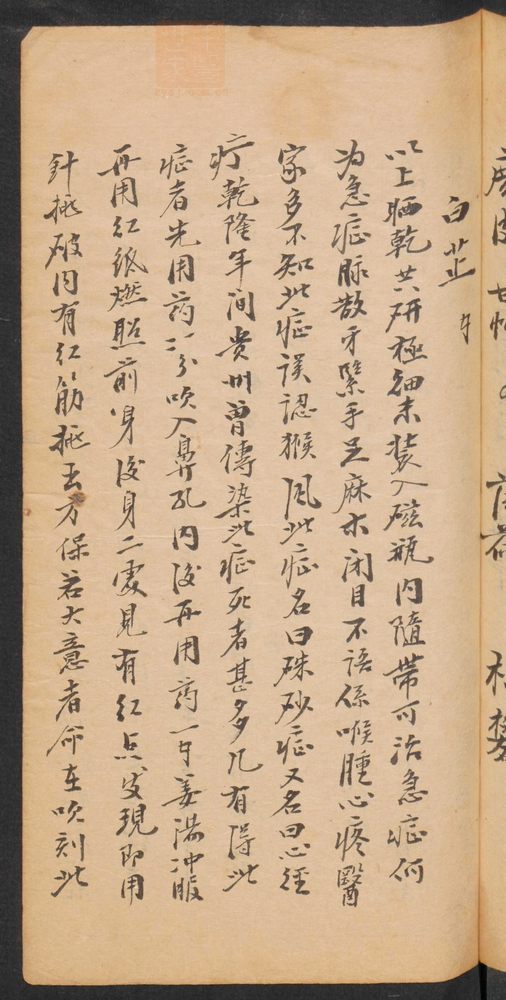 白芷 可
以上晒乾共研極細末裝入磁瓶內隨帶可治急症何
为急症脉散牙緊手足麻木闭目不语係喉腫心疼醫
家多不知此症误認猴风此症名曰硃砂症又名曰心經
疔乾隆年间贵州曾傳染此症死者甚多凡有得此
症者先用药二三分吹入鼻孔内後再用药一可姜湯冲服
再用红纸燃照前身後身二處見有红点发現即用
針挑破内有红筋挑去方保若大意者命在吹刻此